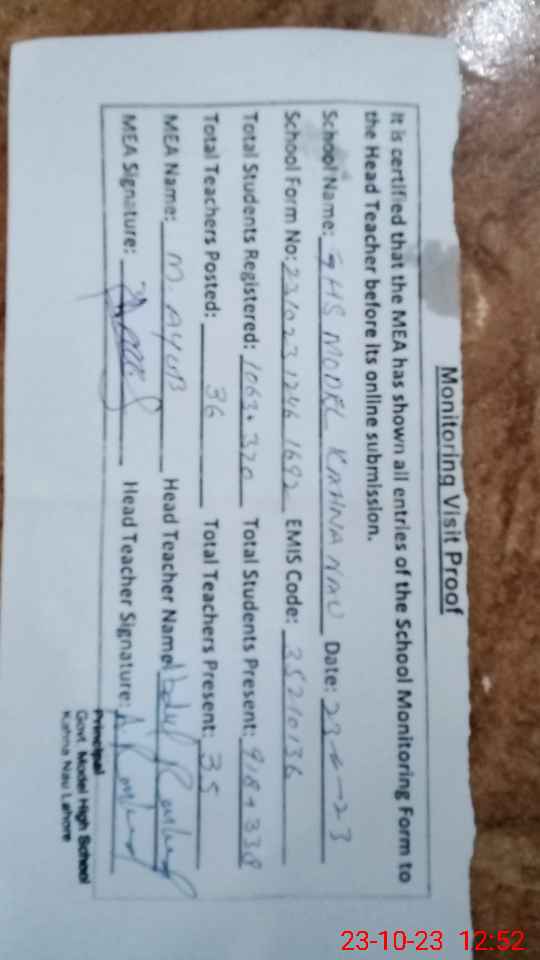 Monitoring Visit Proof
It is certified that the MEA has shown all entries of the School Monitoring Form to
the Head Teacher before its online submission.
School Name: GHS MODEL KAHNA NAU Date:
School Form No: 23102312461692 EMIS Code: 35210136
Total Students Registered: 1063+320 Total Students Present: 918+338
Total Teachers Posted: 36 Total Teachers Present: 35
MEA Name: M. AYUB Head Teacher Name:
MEA Signature: Head Teacher Signature:
Principal
Govt. Model High School
Kahna Nau Lahore
23-10-23 12:52